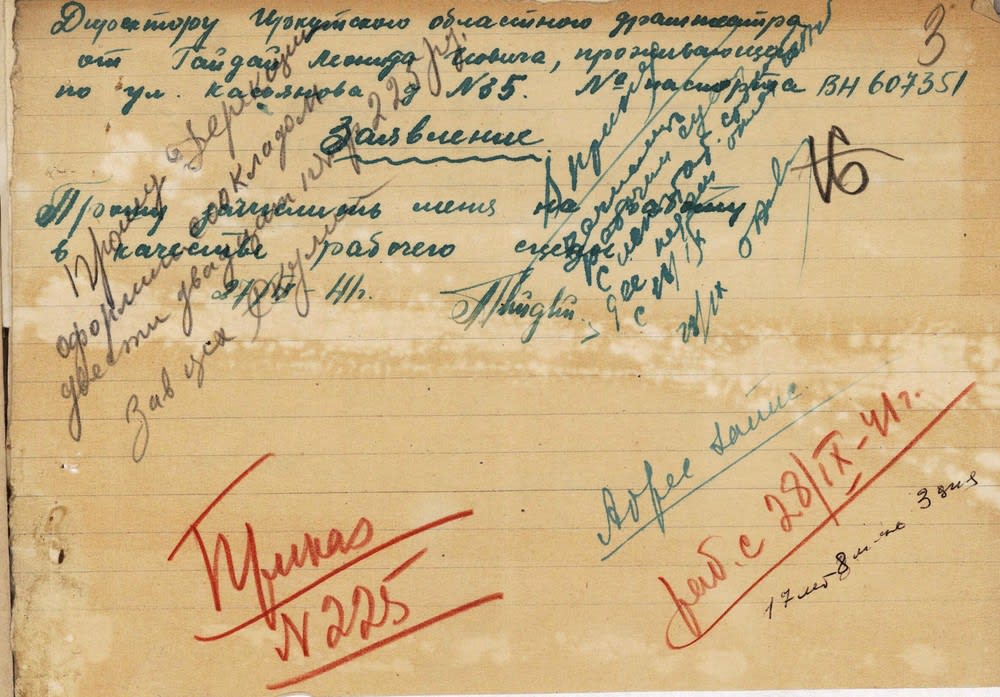 Директору Иркутского областного драмтеатра
от Гайдай Леонида Иовича, проживающего
по ул. Касьянова д №35. № паспорта ВН 607351
3
Заявление.
Прошу зачислить меня на работу
в качестве рабочего сцены
Гайдай.
16
Прошу
оформить с окладом
двести двадцать пять 225 р.
Зав
с 28/IX
28/IX
Приказ
N 225
Адрес
раб. с 28/IX-41г.
17 лет 8 м-ев 3 дня